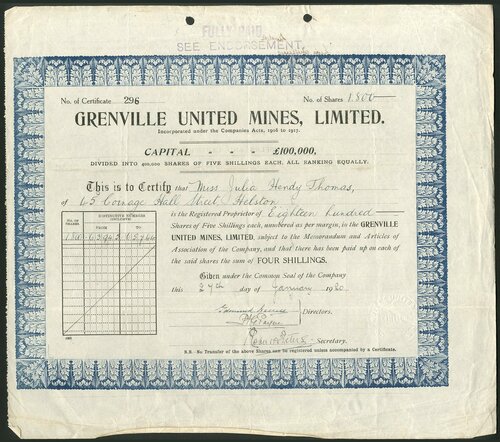 FULLY PAID
SEE ENDORSEMENT
No. of Certificate 296
No. of Shares 1,800
GRENVILLE UNITED MINES, LIMITED.
Incorporated under the Companies Acts, 1908 to 1917.
CAPITAL - - - £100,000,
DIVIDED INTO 400,000 SHARES OF FIVE SHILLINGS EACH, ALL RANKING EQUALLY.
This is to Certify that Miss Julia Hendy Thomas,
of 65 Coinage Hall Street Helston
is the Registered Proprietor of Eighteen hundred
Shares of Five Shillings each, numbered as per margin, in the GRENVILLE
UNITED MINES, LIMITED, subject to the Memorandum and Articles of
Association of the Company, and that there has been paid up on each of the
said shares the sum of FOUR SHILLINGS.
NO. OF SHARES
DISTINCTIVE NUMBERS INCLUSIVE
1800
Given under the Common Seal of the Company
this 27th day of January 1920.
Directors.
Secretary.
N.B.—No Transfer of the above Shares can be registered unless accompanied by a Certificate.